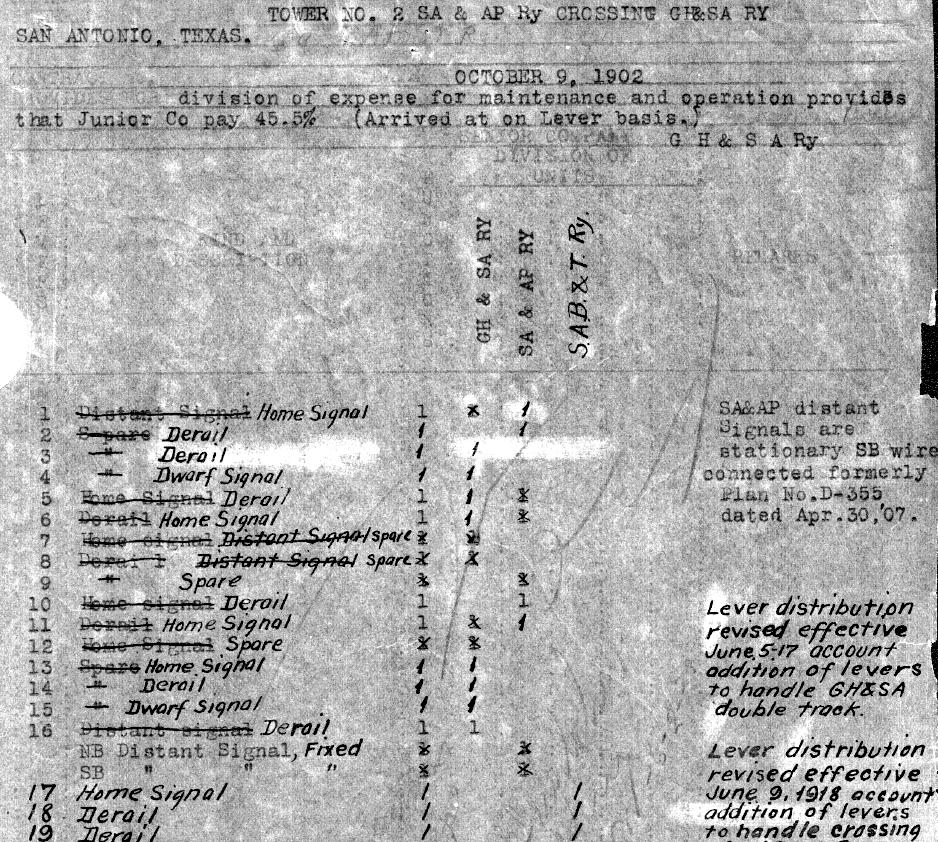 TOWER NO. 2 SA & AP Ry CROSSING GH&SA RY
SAN ANTONIO, TEXAS.
OCTOBER 9, 1902
division of expense for maintenance and operation provides
that Junior Co pay 45.5% (Arrived at on Lever basis.)
G H & S A Ry
DIVISION OF
UNITS
GH & SA RY
SA & AP RY
S.A.B.&T. Ry.
REMARKS
1 Distant Signal Home Signal 1 x 1
2 Spare Derail 1 1
3 " Derail 1 1
4 " Dwarf Signal 1 1
5 Home Signal Derail 1 1 x
6 Derail Home Signal 1 1 x
7 Home signal Distant Signal spare x x
8 Derail Distant Signal spare x x
9 " Spare x x
10 Home signal Derail 1 1
11 Derail Home Signal 1 x 1
12 Home Signal Spare x x
13 Spare Home Signal 1 1
14 " Derail 1 1
15 " Dwarf Signal 1 1
16 Distant signal Derail 1 1
NB Distant Signal, Fixed x x
SB " " " x x
17 Home Signal 1 1
18 Derail 1 1
19 Derail 1 1
SA&AP distant
Signals are
stationary SB wire
connected formerly
Plan No.D-355
dated Apr.30,'07.
Lever distribution
revised effective
June 5-17 account
addition of levers
to handle GH&SA
double track.
Lever distribution
revised effective
June 9, 1918 account
addition of levers
to handle crossing